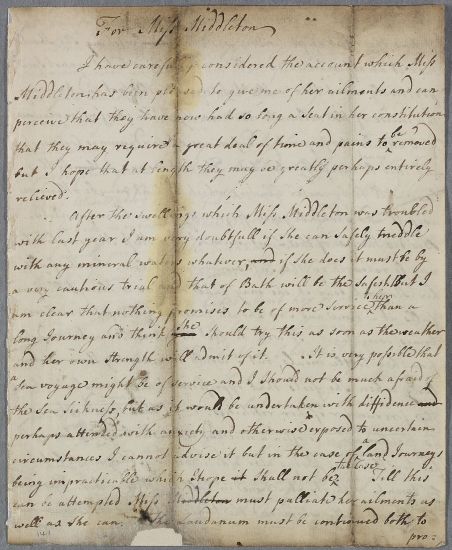 For Miss Middleton
I have carefully considered the account which Miss
Middleton has been pleased to give me of her ailments and can
perceive that they have now had so long a seat in her constitution
that they may require a great deal of time and pains to be removed
but I hope that at length they may be greatly perhaps entirely
relieved.
After the swellings which Miss Middleton was troubled
with last year I am very doubtfull if she can safely meddle
with any mineral waters whatever, and if she does it must be by
a very cautious trial and that of Bath will be the safest. But I
am clear that nothing promises to be of more service to her than a
long Journey and think she should try this as soon as the weather
and her own strength will admit of it. It is very possible that
a Sea voyage might be of service and I should not be much afraid of
the Sea Sickness, but as it would be undertaken with diffidence and
perhaps attended with anxiety and otherwise exposed to uncertain
circumstances I cannot advise it but in the case of a land Journeys
being impracticable which I hope it shall not be the case. Till this
can be attempted Miss Middleton must palliate her ailments as
well as she can. The Laudanum must be continued both to
pro=